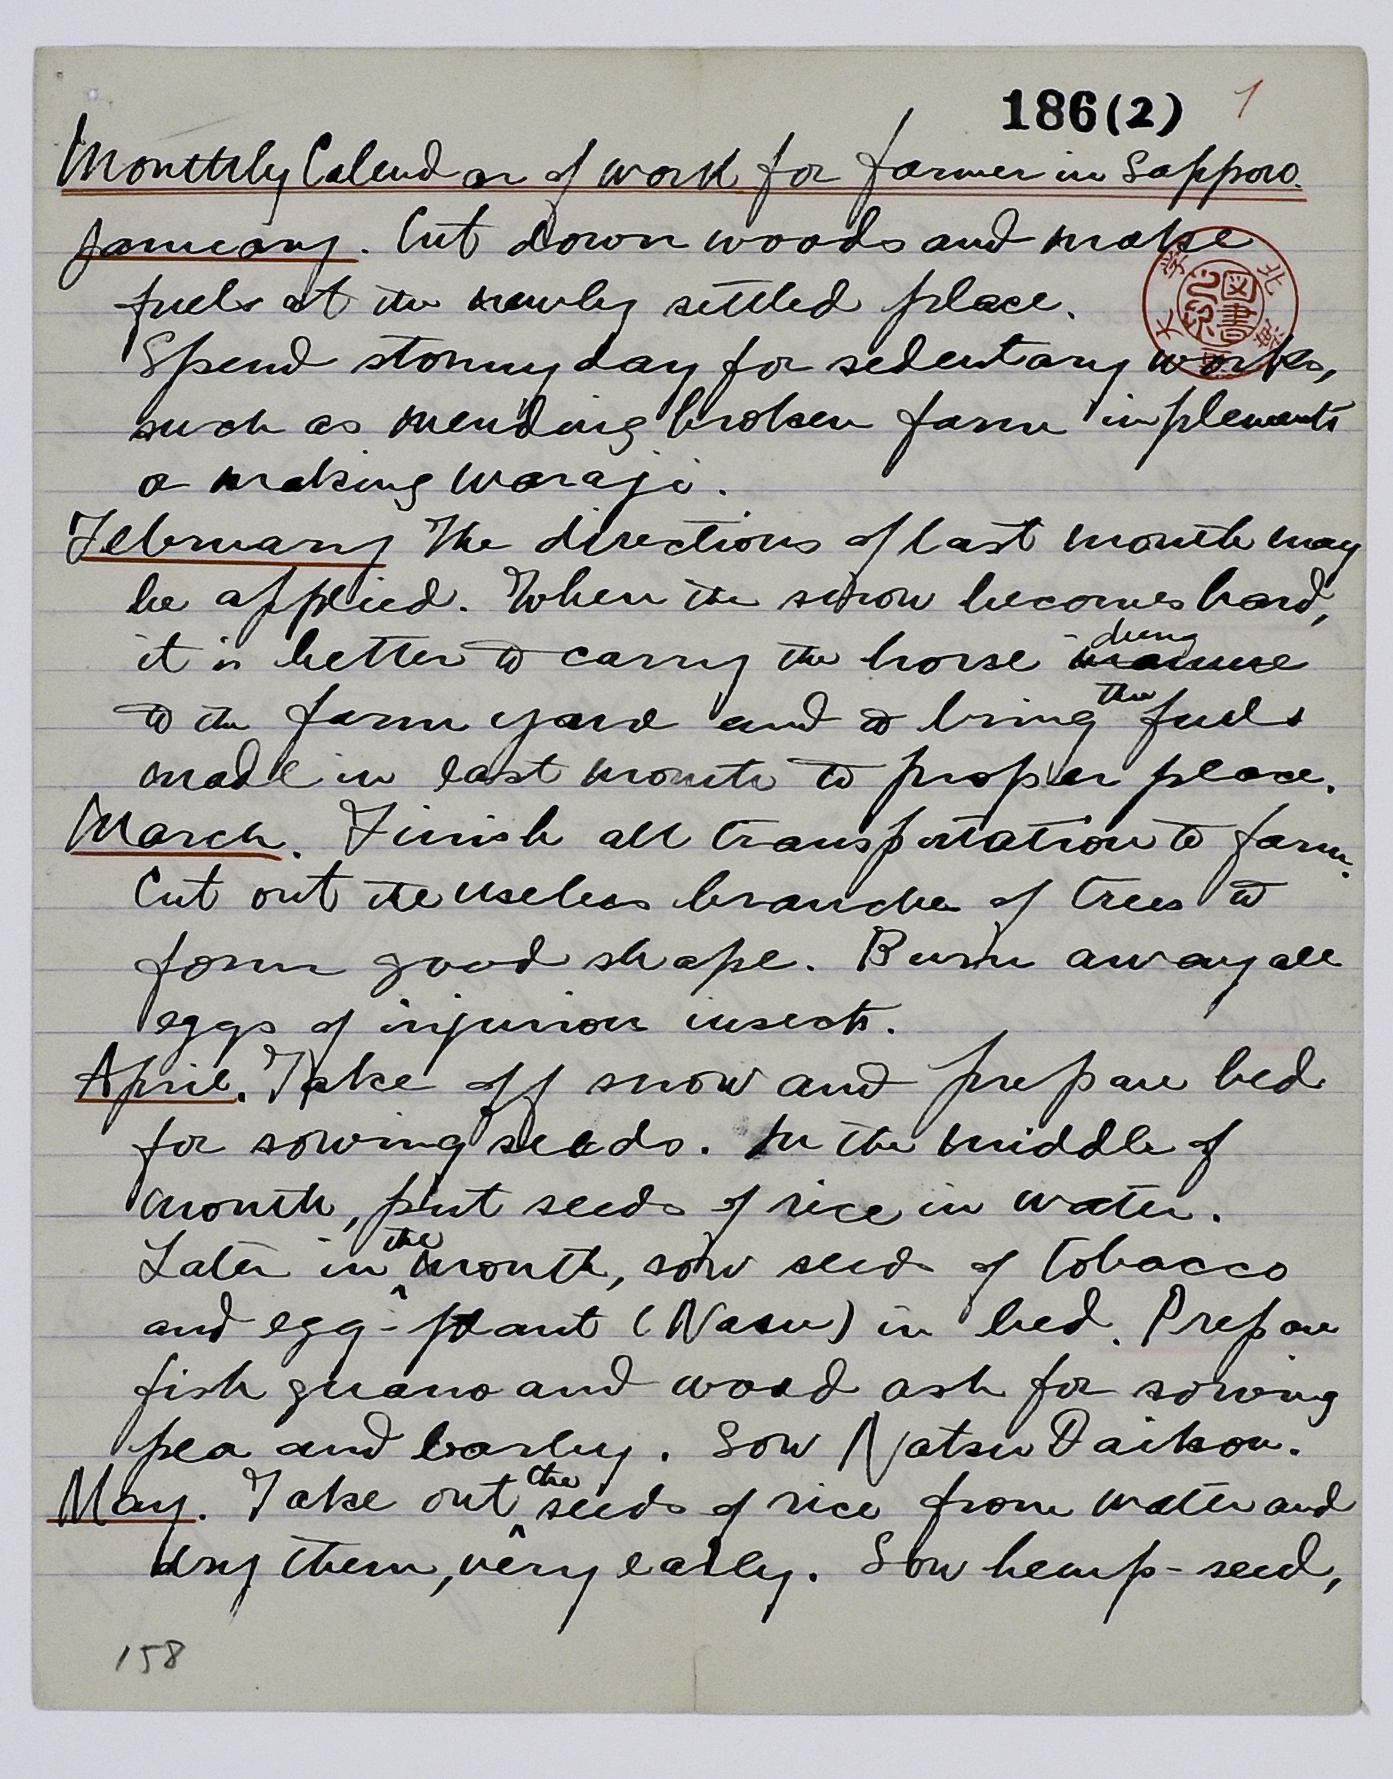 186(2) 1
Monthly Calendar of work for farmer in Sapporo.
January. Cut down woods and make
fuels at the newly settled place.
Spend stormy day for sedentary works,
such as mending broken farm implements
or making waraji.
February The directions of last month may
be applied. When the snow becomes hard,
it is better to carry the horse manure dung
to the farm yard and to bring the fuels
made in last month to proper place.
March. Finish all transportation to farm.
Cut out the useless branches of trees to
form good shape. Burn away all
eggs of injurious insects.
April. Take off snow and prepare bed
for sowing seeds. In the middle of
month, put seeds of rice in water.
Later in the month, sow seeds of tobacco
and egg-plant (Nasu) in bed. Prepare
fish guano and wood ash for sowing
pea and barley. Sow Natsu Daikon.
May. Take out the seeds of rice from water and
dry them, very early. Sow hemp-seed,
158